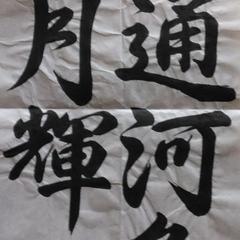 通河
月輝